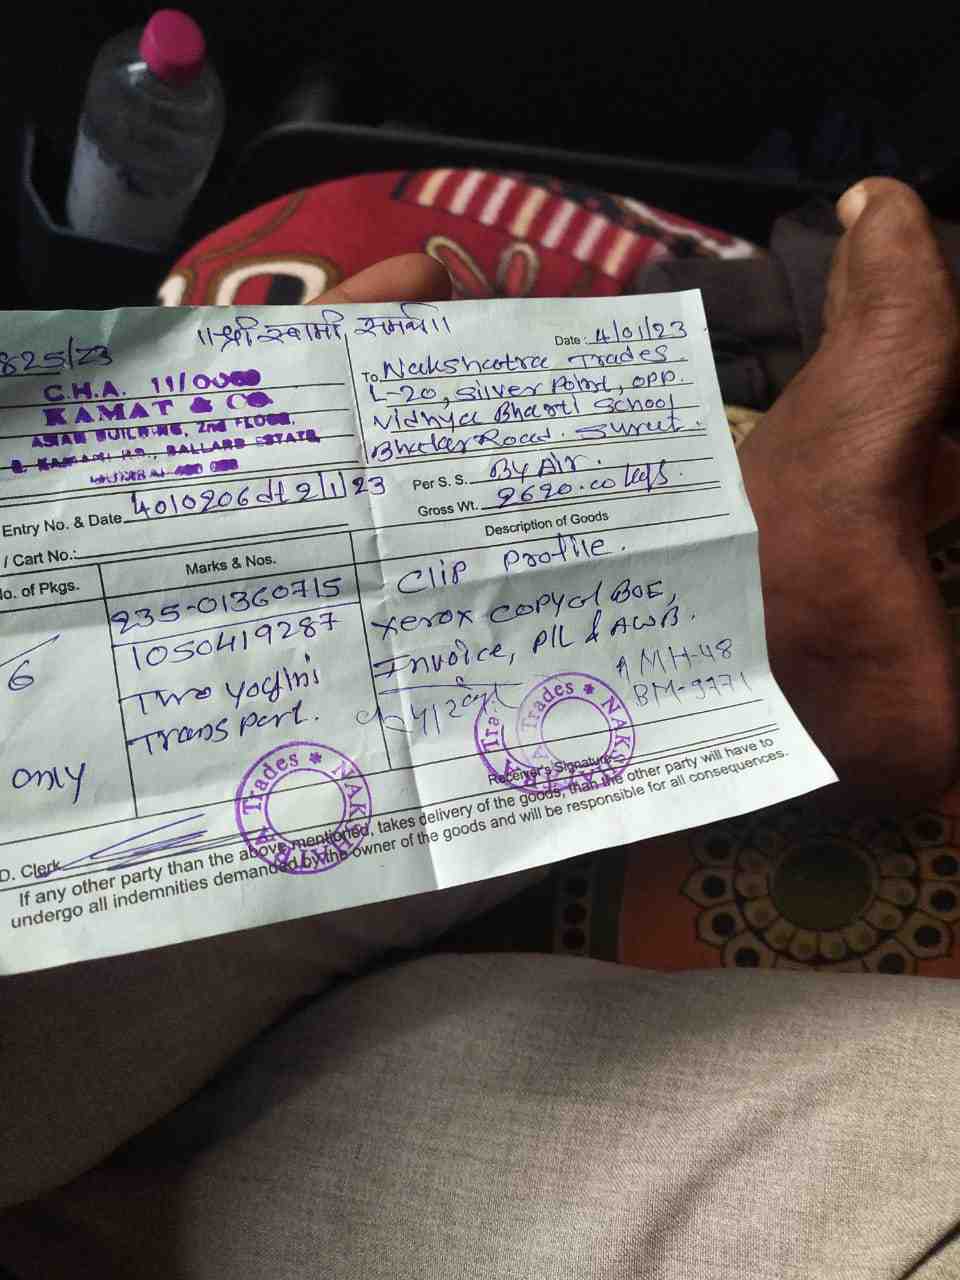 ॥ श्री स्वामी समर्थ ॥
825/23
Date: 4/01/23
C.H.A. 11/
KAMAT & CO.
ASIAN BUILDING, 2nd FLOOR,
KAMANI RD., BALLARD ESTATE,
MUMBAI
To Nakshatra Trades
L-20, Silver Point, opp.
Vidhya Bharti School
Bhatar Road. Surat.
Entry No. & Date 4010206 dt 2/1/23
Per S. S. By Air.
Gross Wt. 2620.00 kgs.
/ Cart No.:
No. of Pkgs.
Marks & Nos.
Description of Goods
6
only
235-01360715
1050419287
Two Yogini
Transport.
Clip Profile.
Xerox copy of BOE,
Invoice, P/L & AWB.
MH-48
BM-9771
Trades * NAKSHATRA
Trades * NAKSHATRA
Receiver's Signature
D. Clerk
If any other party than the above mentioned, takes delivery of the goods, than the other party will have to
undergo all indemnities demanded by the owner of the goods and will be responsible for all consequences.